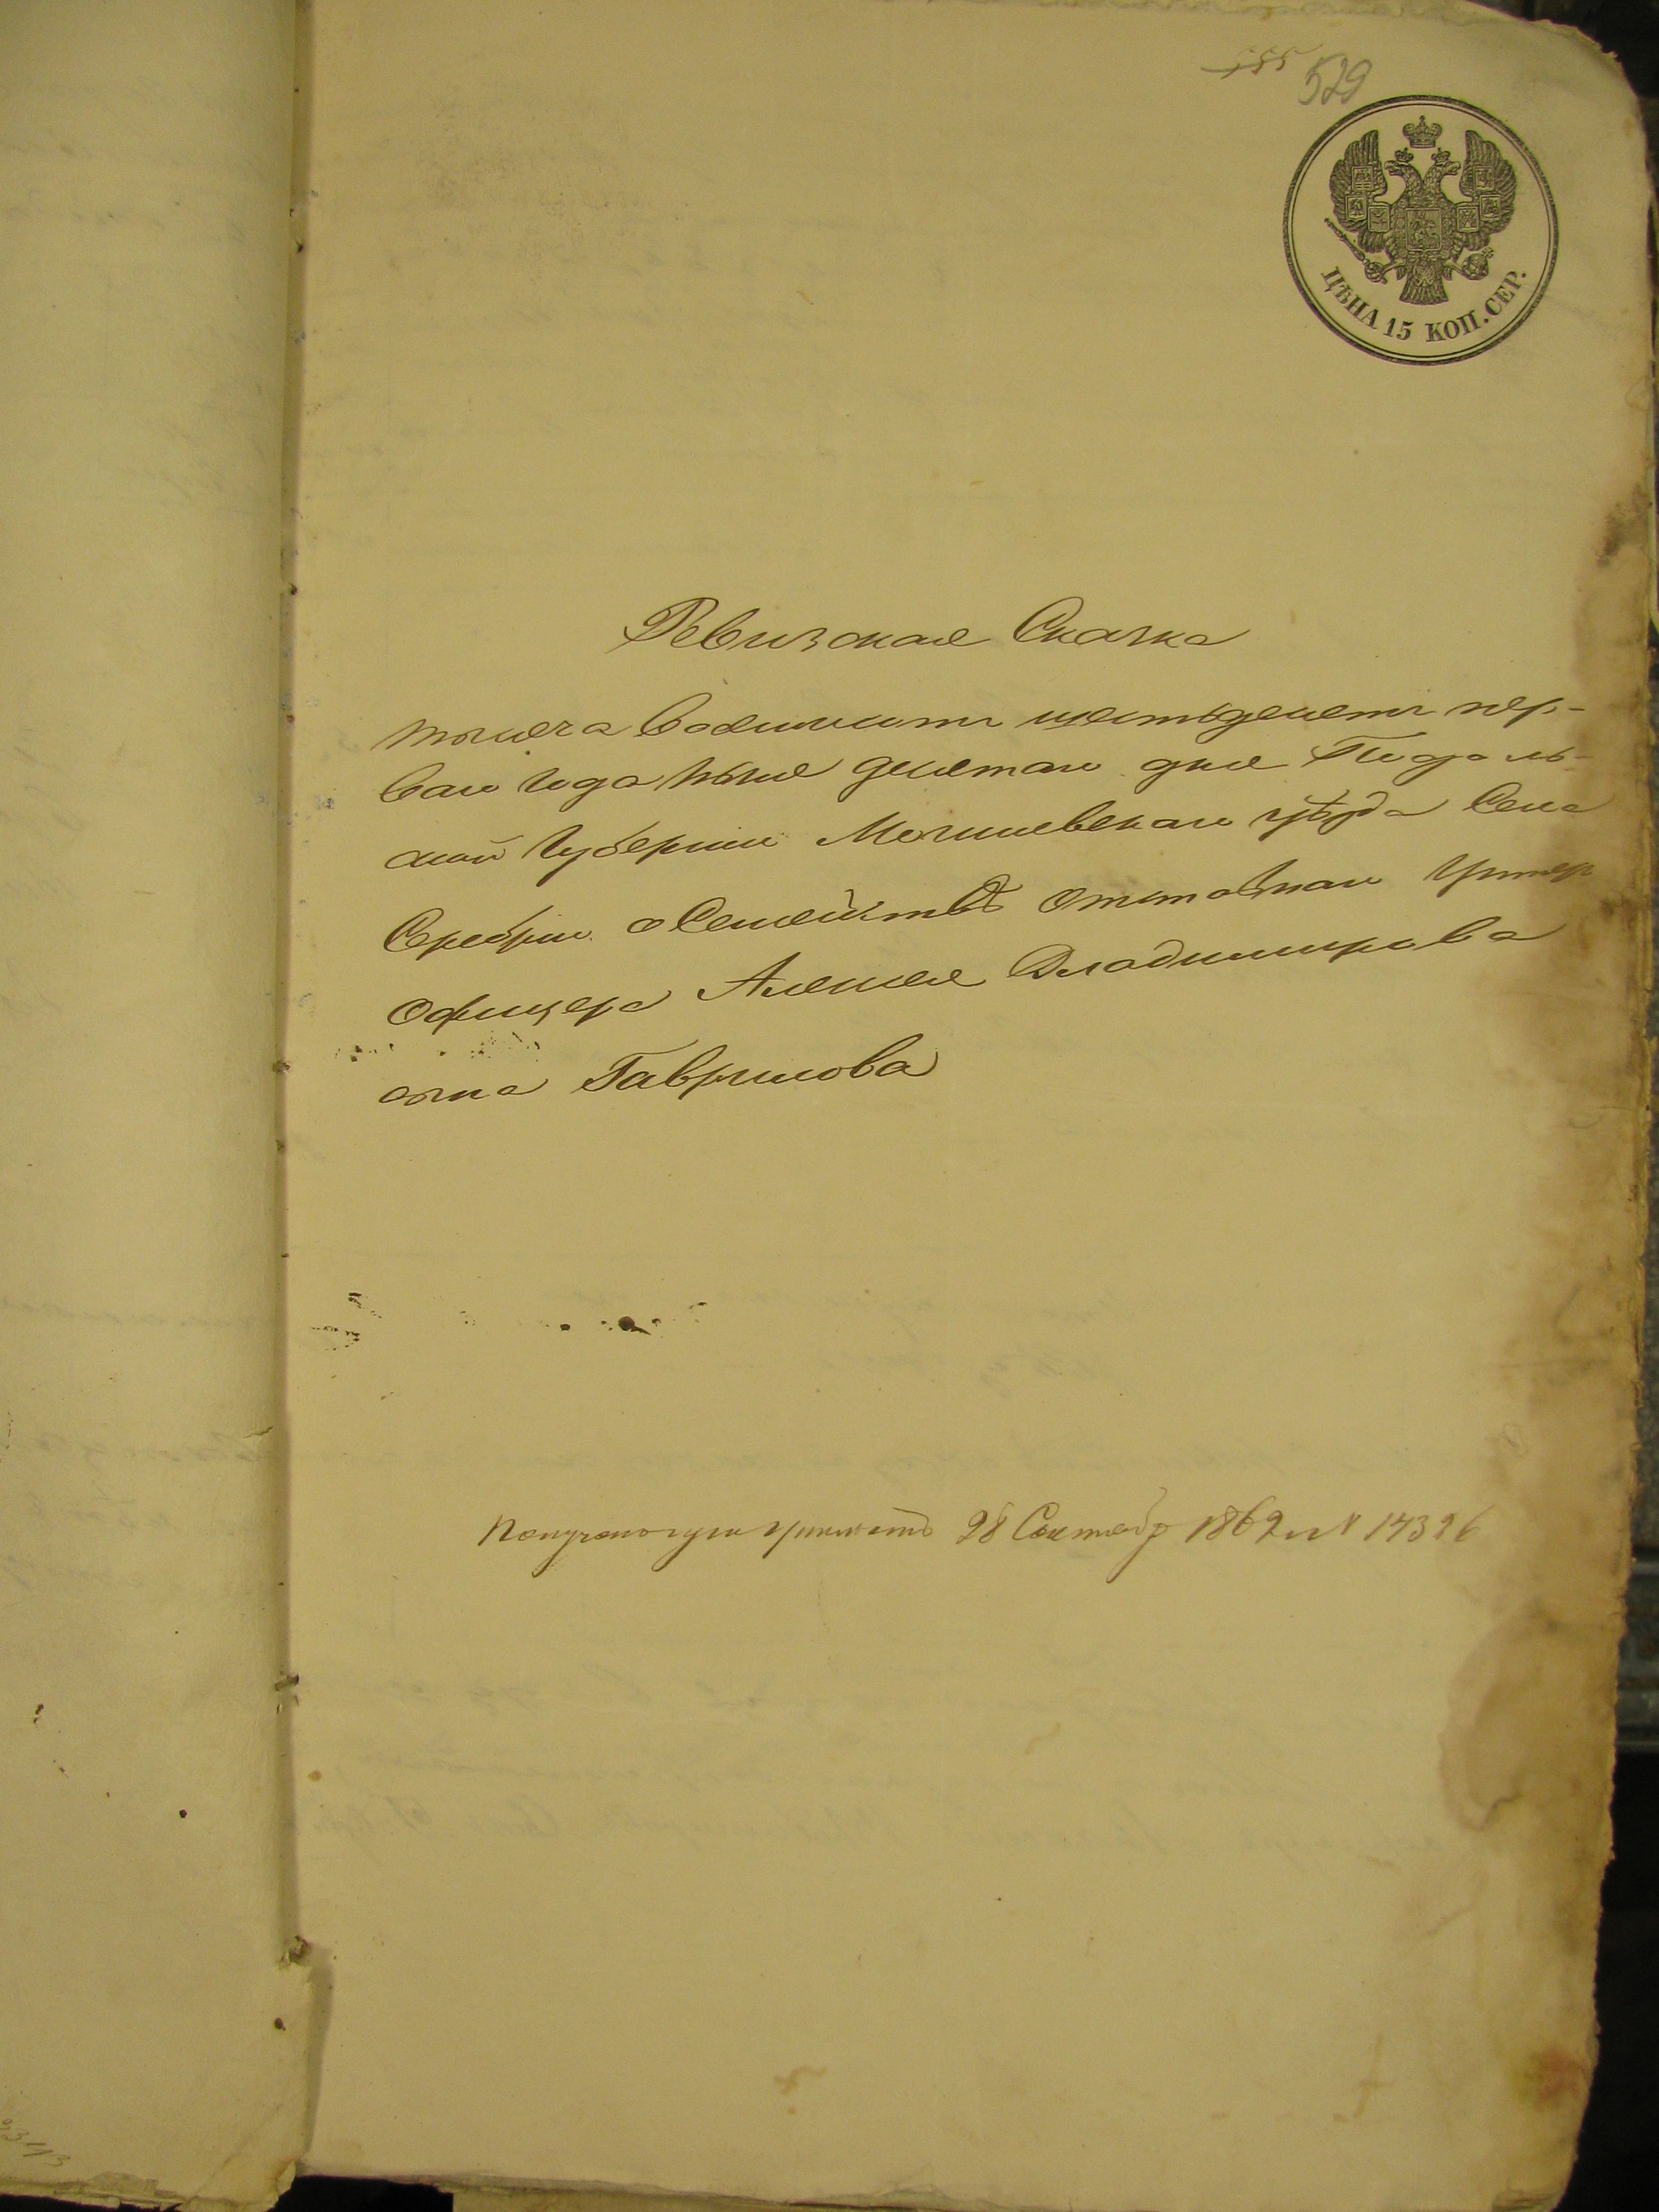 529
ЦѢНА 15 КОП. СЕР.
Ревизская Сказка
тысяча восемьсотъ шестьдесятъ пер-
ваго года Июня десятаго дня Подоль-
ской Губерніи Могилевскаго уѣзда Села
Серебріи о Семействѣ отставнаго Унтеръ
Офицера Алексея Владимирова
сына Гаврилова
28 Сентябр 1862 г N 14326